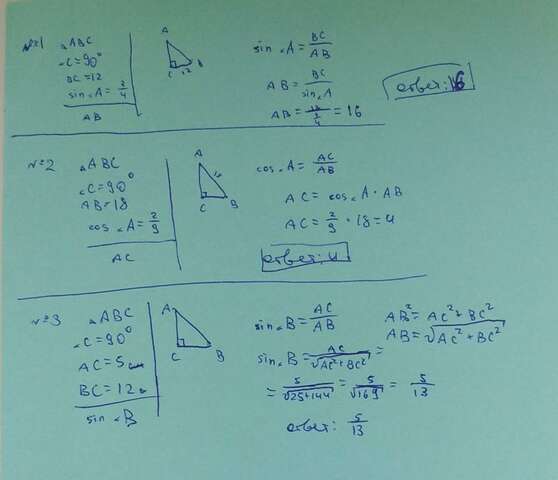 №1
△ABC
∠C=90°
BC=12
sin∠A=3/4
AB
A
C 12 B
sin∠A=BC/AB
AB=BC/sin∠A
AB=12/(3/4)=16
ответ: 16
№2
△ABC
∠C=90°
AB=18
cos∠A=2/9
AC
A
18
C B
cos∠A=AC/AB
AC=cos∠A·AB
AC=2/9·18=4
ответ: 4
№3
△ABC
∠C=90°
AC=5
BC=12
sin∠B
A
C B
sin∠B=AC/AB
sin∠B=AC/√(AC²+BC²)=
=5/√(25+144)=5/√169=5/13
ответ: 5/13
AB²=AC²+BC²
AB=√(AC²+BC²)